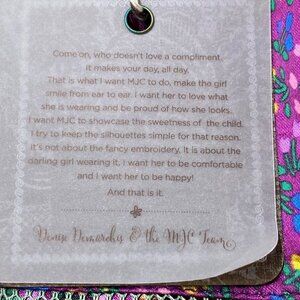 Come on, who doesn't love a compliment.
It makes your day, all day.
That is what I want MJC to do, make the girl
smile from ear to ear. I want her to love what
she is wearing and be proud of how she looks.
I want MJC to showcase the sweetness of the child.
I try to keep the silhouettes simple for that reason.
It's not about the fancy embroidery. It is about the
darling girl wearing it. I want her to be comfortable
and I want her to be happy!
And that is it.
Denise Demarchis & the MJC Team